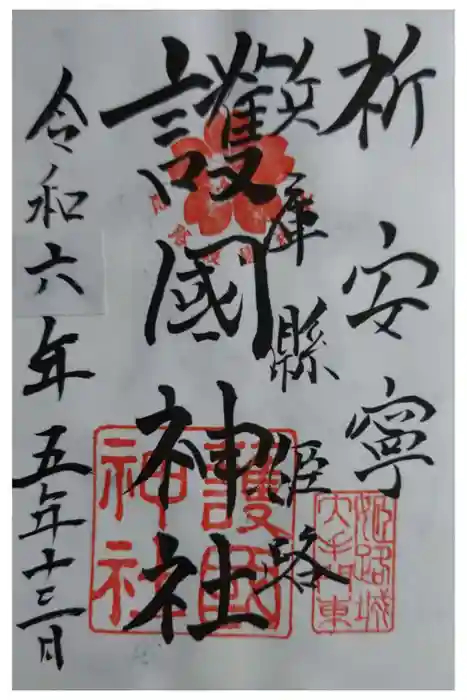 祈安寧
兵庫縣姫路
護國神社
令和六年五年十三日
護國
神社
姫路城
内本東